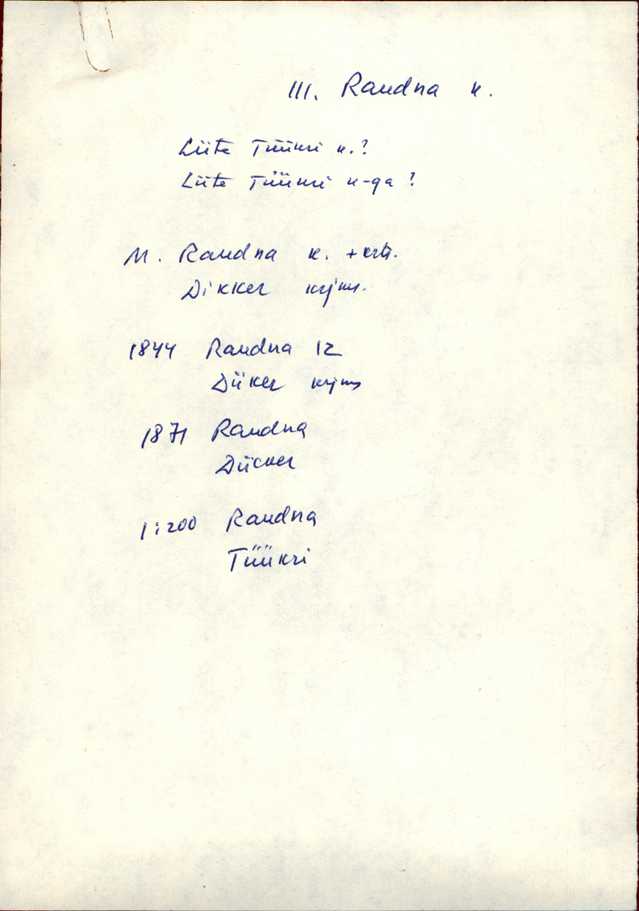 III. Raudna k.
Liita Tüükri k.?
Liita Tüükri k-ga?
M. Raudna k. +
Dikker
1844 Raudna 12
Düker
1871 Raudna
Dücker
1:200 Raudna
Tüükri